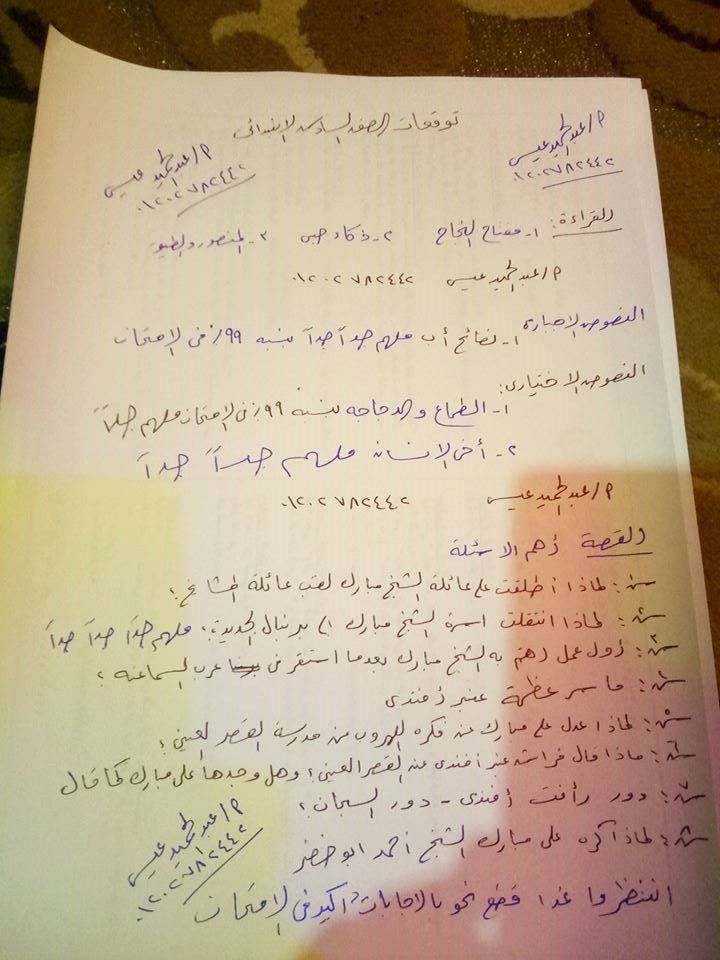 توقعات الصف السادس الابتدائى
م/ عبد الحميد عيسى
٠١٢٠٢٧٨٢٤٤٢
م/ عبد الحميد عيسى
٠١٢٠٢٧٨٢٤٤٢
القراءة: ١- مفتاح النجاح ٢- ذكاء صبى ٣- المنصور والطيور
م/ عبد الحميد عيسى ٠١٢٠٢٧٨٢٤٤٢
النصوص الاجبارى
١- نصائح أب ملهم جداً جداً بنسبة ٩٩٪ فى الامتحان
النصوص الاختيارى:
١- الطماع والدجاجه بنسبة ٩٩٪ فى الامتحان ملهم جداً
٢- أخى الانسان ملهم جداً جداً
م/ عبد الحميد عيسى ٠١٢٠٢٧٨٢٤٤٢
القصة أهم الاسئلة
س١: لماذا أطلقت على عائلة الشيخ مبارك لقب عائلة المشايخ؟
س٢: لماذا انتقلت اسرة الشيخ مبارك الى برنبال الجديدة؟ ملهم جداً جداً جداً
س٣: أول عمل اهتم به الشيخ مبارك بعدما استقر فى عرب السماعنه؟
س٤: ما سر عظمة عنبر أفندى
س٥: لماذا عدل على مبارك عن فكره الهروب من مدرسة القصر العينى؟
س٦: ماذا قال فراش عنبر أفندى عن القصر العينى؟ وهل وجدها على مبارك كما قال
س٧: دور رأفت أفندى - دور السجان؟
س٨: لماذا كره على مبارك الشيخ أحمد ابو خضر
م/ عبد الحميد عيسى
٠١٢٠٢٧٨٢٤٤٢
انتظروا غدا قطع نحو بالاجابات أكيد فى الامتحان